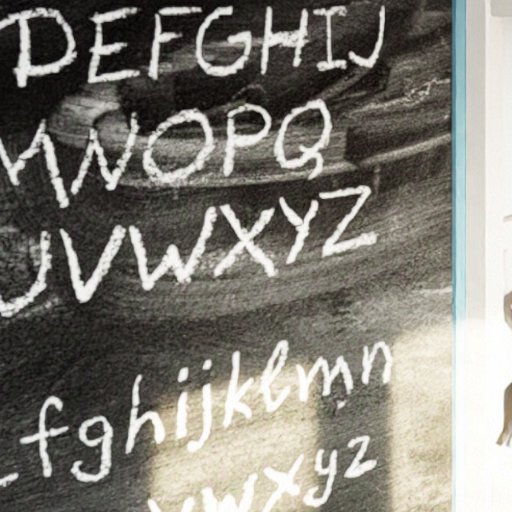 DEFGHIJ
MNOPQ
UVWXYZ
fghijklmn
vwxyz